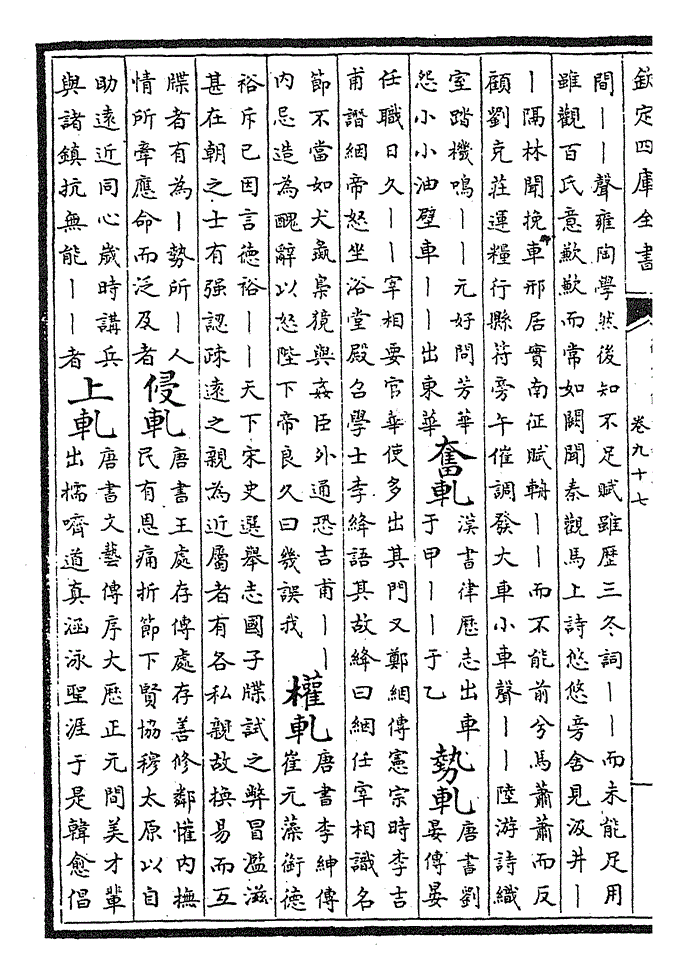 欽定四庫全書
卷九十七
間丨丨聲雍陶學然後知不足賦雖歷三冬詞丨丨而未能足用
雖觀百氏意歉歉而常如闕聞秦觀馬上詩悠悠旁舍見汲井丨
丨隔林聞挽車邢居實南征賦輈丨丨而不能前兮馬蕭蕭而反
顧劉克莊運糧行縣符旁午催調發大車小車聲丨丨陸游詩織
室踏機鳴丨丨元好問芳華
怨小小油壁車丨丨出東華
奮軋
漢書律歷志出車
于甲丨丨于乙
勢軋
唐書劉
晏傳晏
任職日久丨丨宰相要官華使多出其門又鄭絪傳憲宗時李吉
甫譖絪帝怒坐浴堂殿召學士李絳語其故絳曰絪任宰相識名
節不當如犬彘梟獍與姦臣外通恐吉甫丨丨
內忌造為醜辭以怒陛下帝良久曰幾誤我
權軋
唐書李紳傳
崔元藻銜德
裕斥己因言德裕丨丨天下宋史選舉志國子牒試之弊冒濫滋
甚在朝之士有强認疎遠之親為近屬者有各私親故換易而互
牒者有為丨勢所丨人
情所牽應命而泛及者
侵軋
唐書王處存傳處存善修鄰懽內撫
民有恩痛折節下賢協穆太原以自
助遠近同心歲時講兵
與諸鎮抗無能丨丨者
上軋
唐書文藝傳序大歷正元間美才輩
出擩嚌道真涵泳聖涯于是韓愈倡